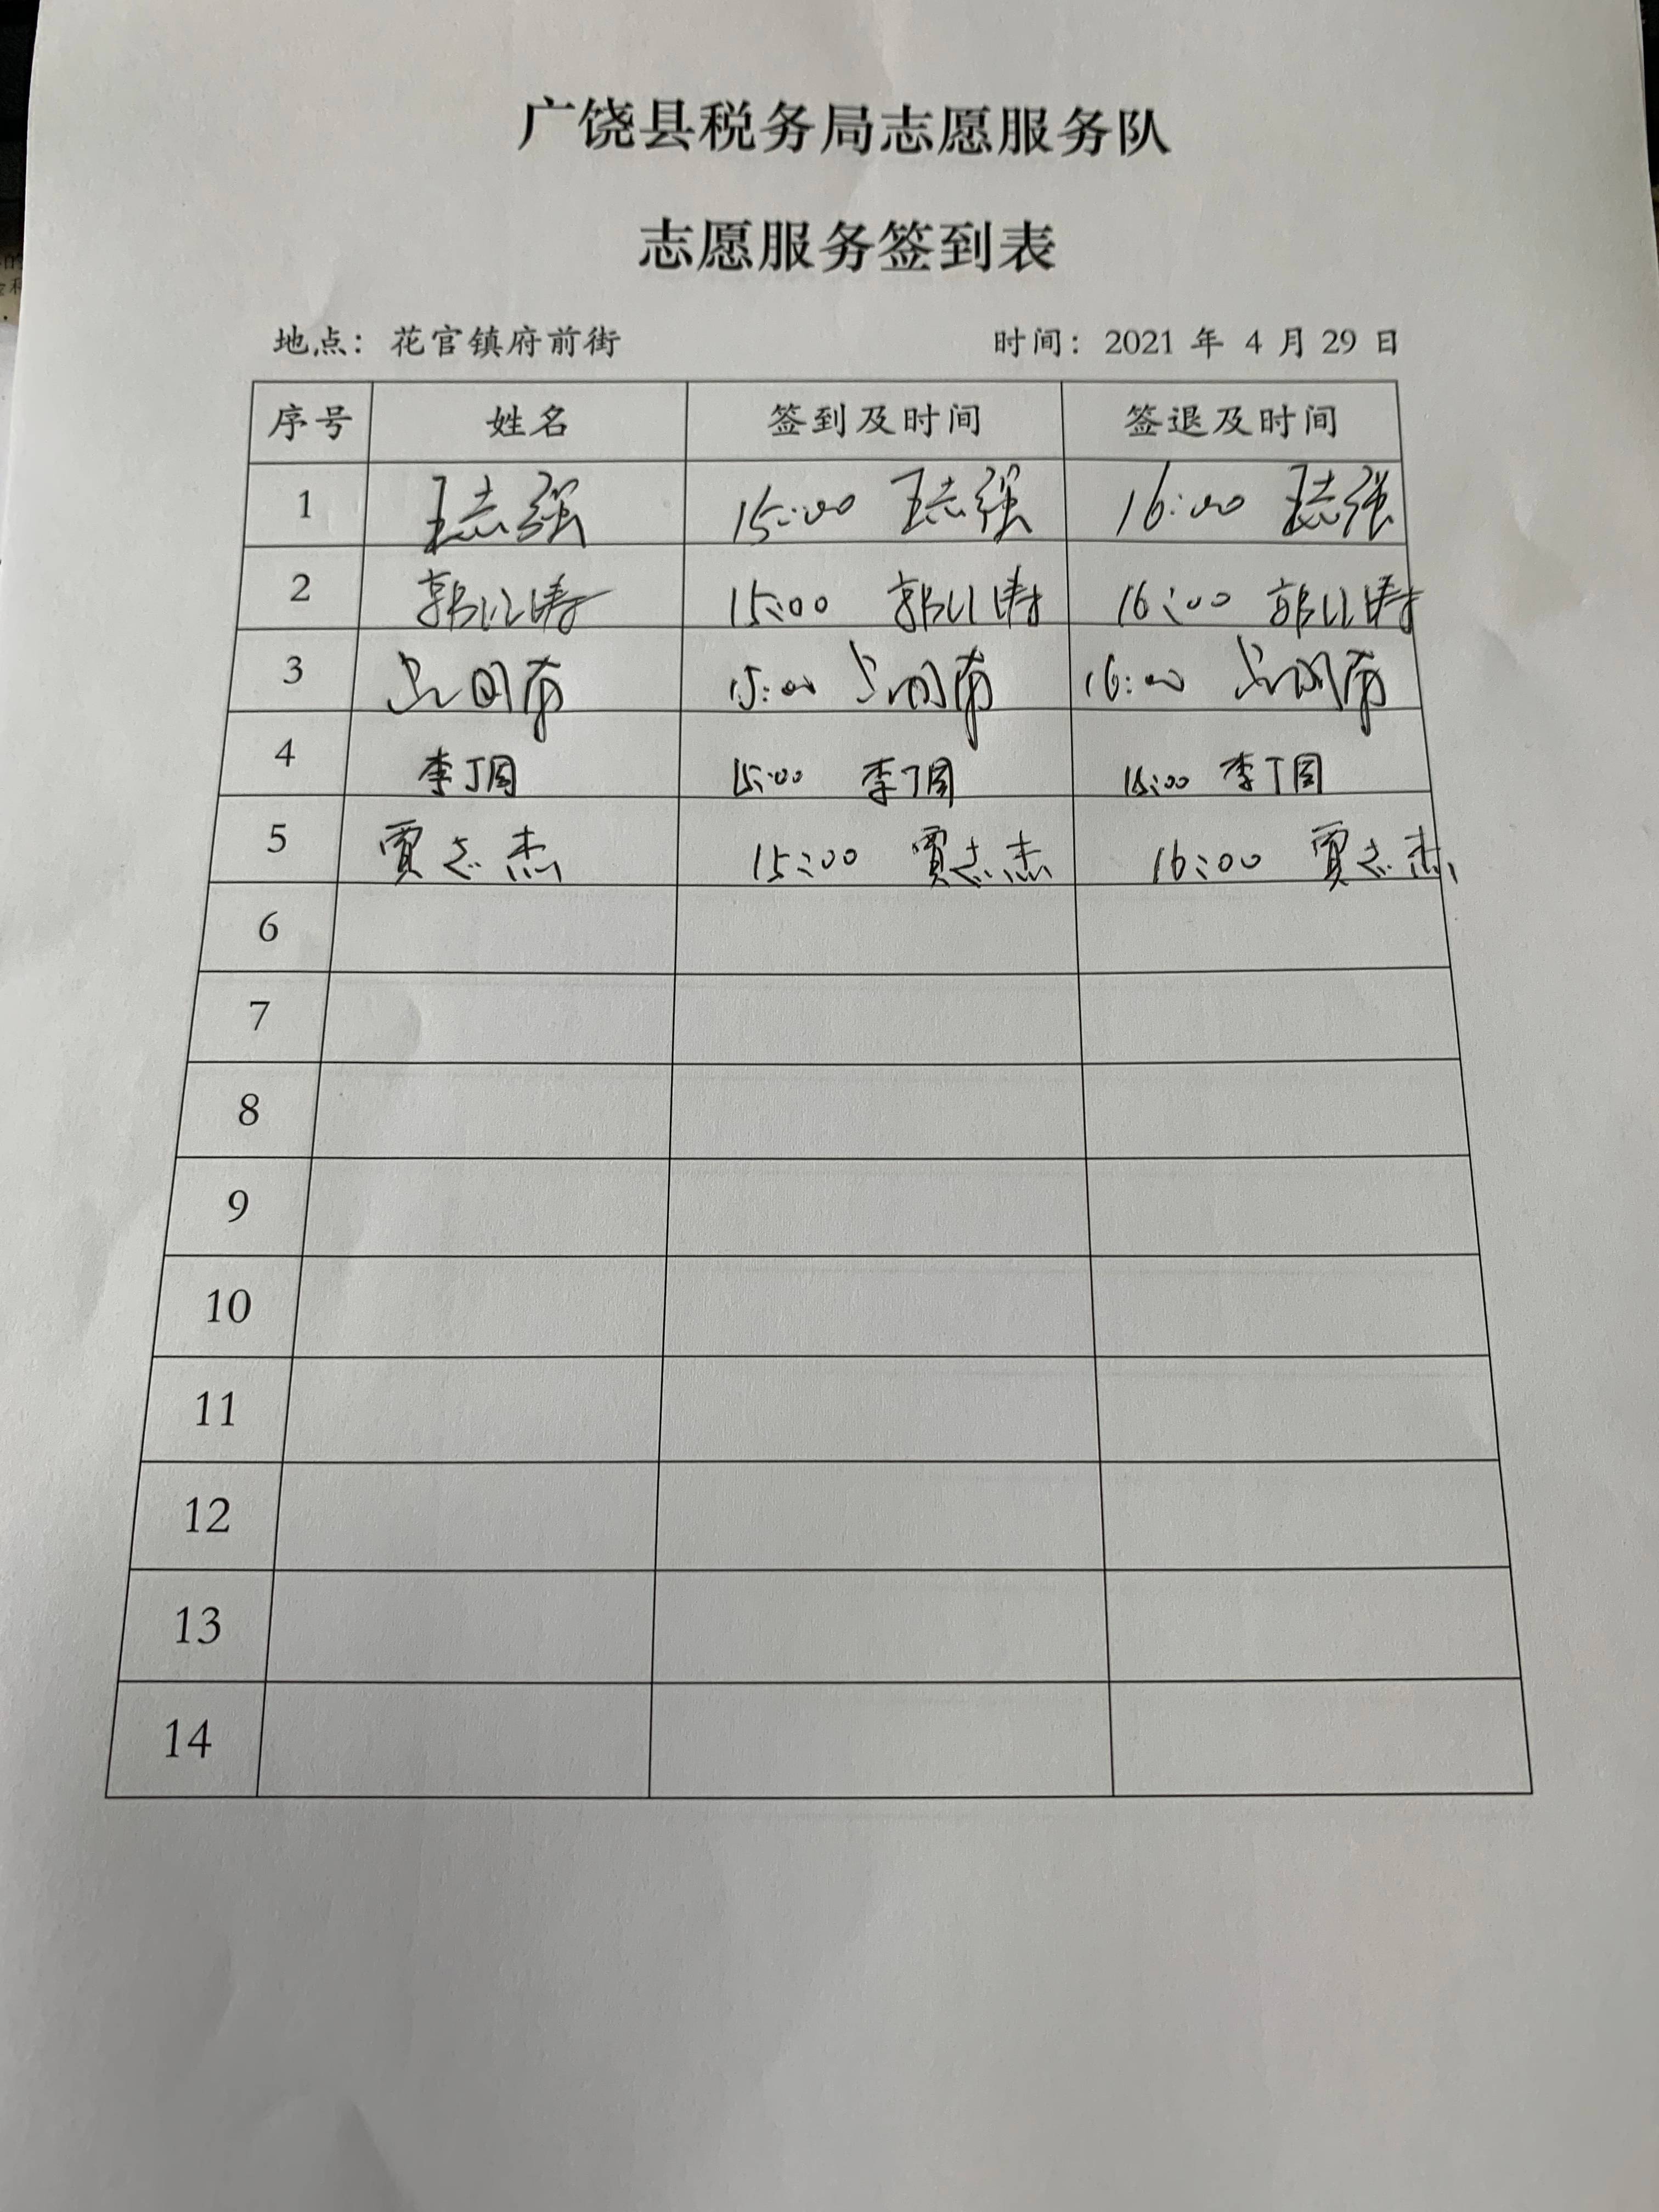 广饶县税务局志愿服务队
志愿服务签到表
地点：花官镇府前街 时间：2021 年 4 月 29 日
序号 姓名 签到及时间 签退及时间
1 王志强 15:00 王志强 16:00 王志强
2 郭以涛 15:00 郭以涛 16:00 郭以涛
3 15:00 16:00
4 李丁周 15:00 李丁周 16:00 李丁周
5 贾志杰 15:00 贾志杰 16:00 贾志杰
6
7
8
9
10
11
12
13
14